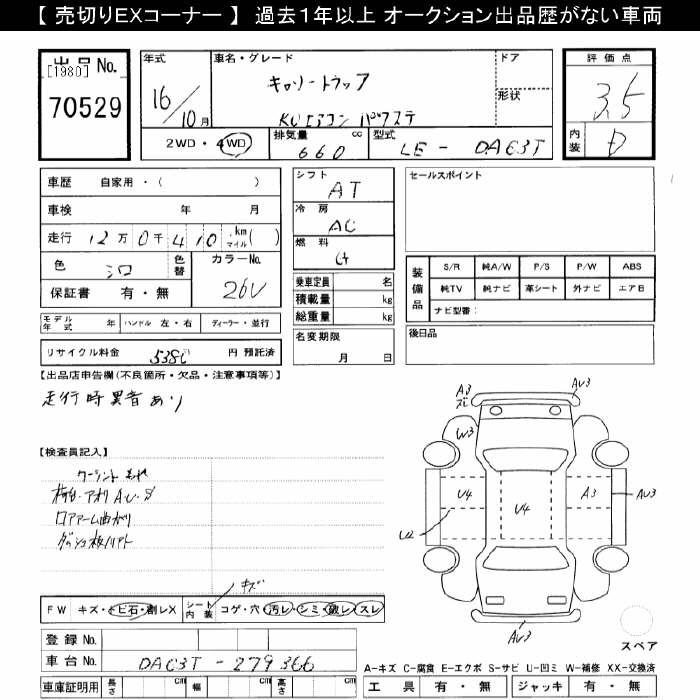 【 売切りEXコーナー 】 過去１年以上 オークション出品歴がない車両
出品 No.
[1980]
70529
年式
16/10月
車名・グレード
キャリートラック
KUエアコン パワステ
ドア
形状
評価点
3.5
内装
D
2WD・4WD
排気量
660 cc
型式
LE - DA63T
車歴 自家用・( )
車検 年 月
走行 12万0千410 km マイル( )
色 シロ
色替
カラーNo.
26U
保証書 有・無
モデル年式 年 ハンドル 左・右 ディーラー・並行
リサイクル料金 5380 円 預託済
シフト
AT
冷房
AC
燃料
G
乗車定員 名
積載量 kg
総重量 kg
名変期限
月 日
セールスポイント
装備品
S/R 純A/W P/S P/W ABS
純TV 純ナビ 革シート 外ナビ エアB
ナビ型番：
後日品
【出品店申告欄(不良箇所・欠品・注意事項等)】
走行時異音あり
【検査員記入】
ロアアーム曲がり
キズ
FW キズ・トビ石・割レX
シート内装 コゲ・穴・汚レ・シミ・破レ・スレ
登録 No.
車台 No. DA63T - 279366
車庫証明用 長さ cm 幅 cm 高さ cm
A3
AU3
W3
U4
U4
A3
AU3
U2
AU3
スペア
A-キズ C-腐食 E-エクボ S-サビ U-凹ミ W-補修 XX-交換済
工具 有・無 ジャッキ 有・無